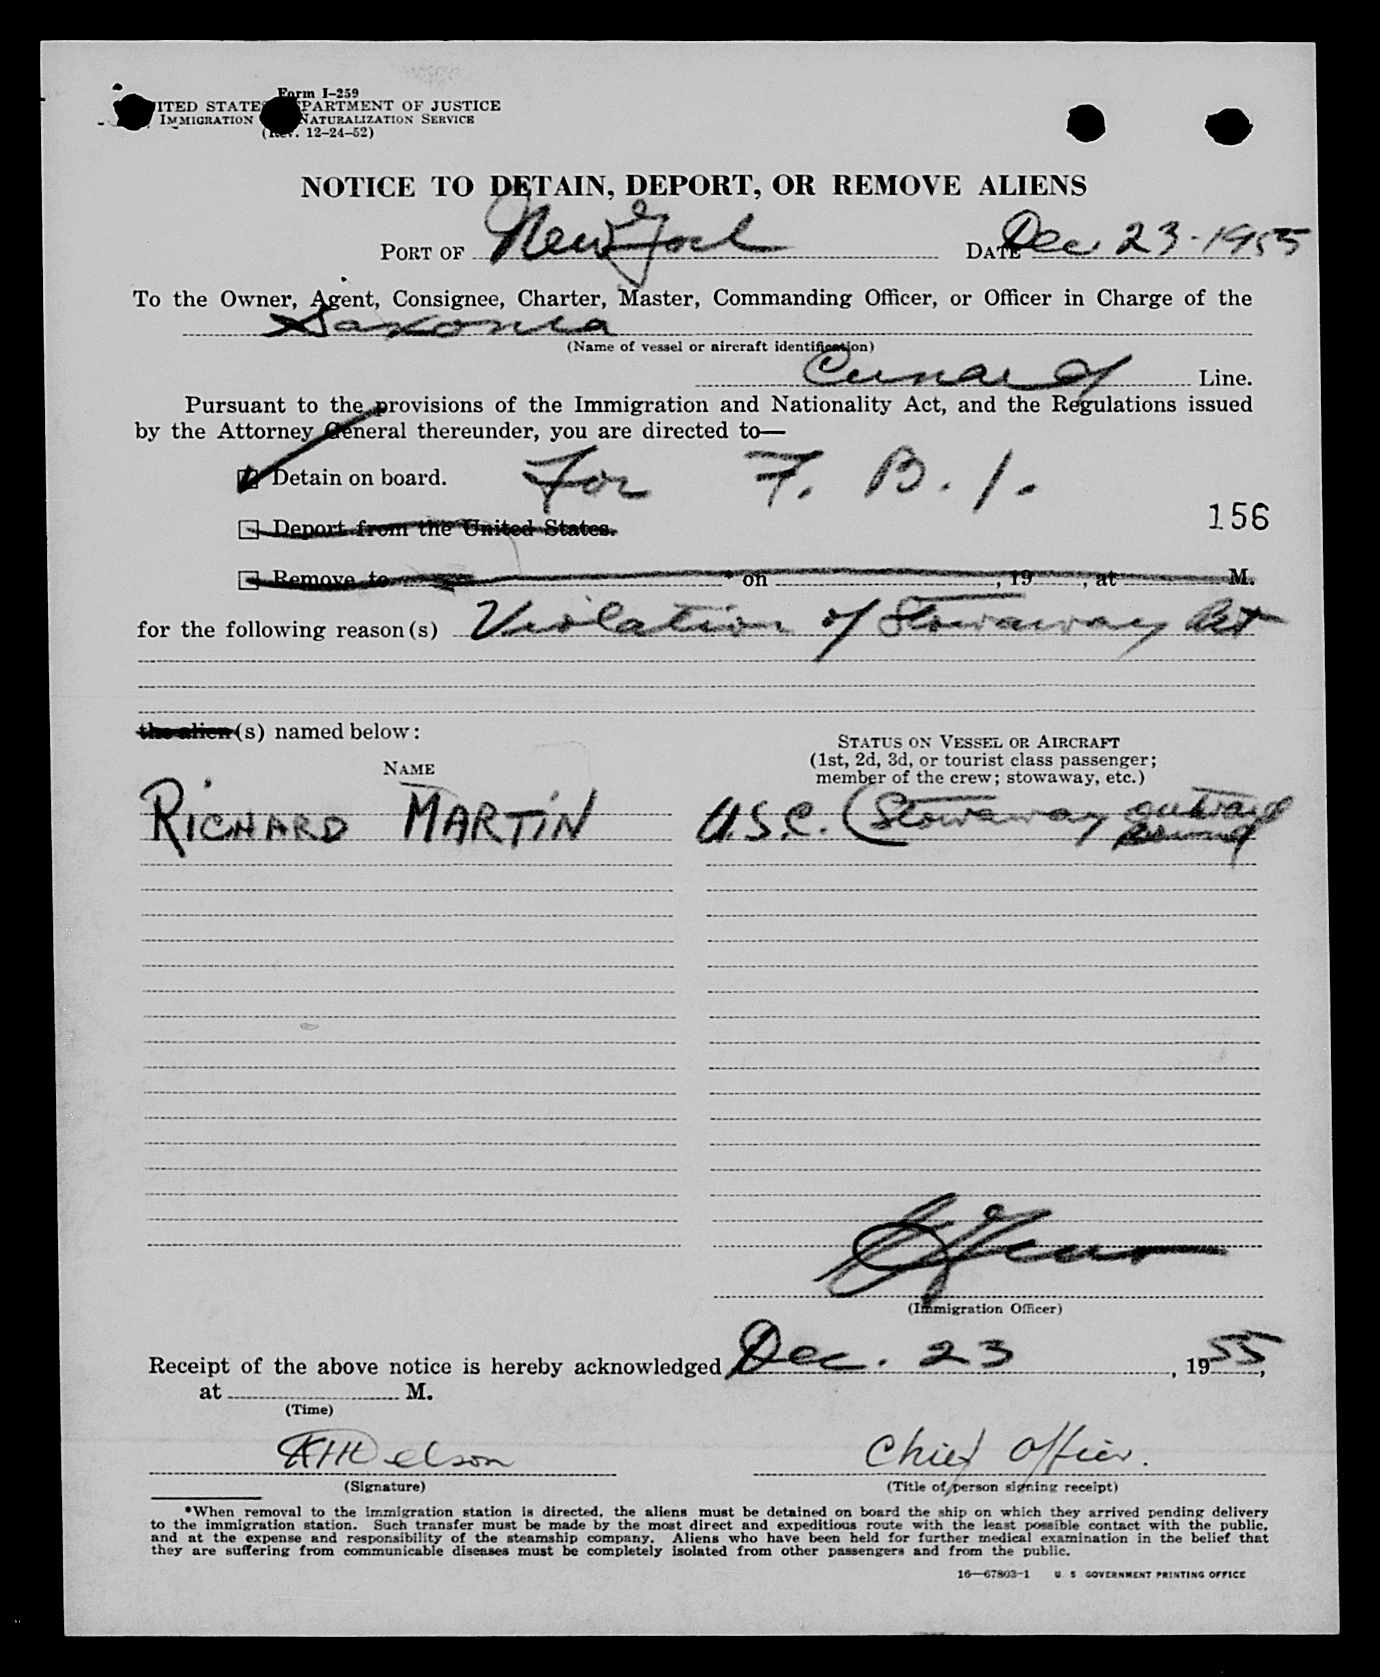 Form I-259
UNITED STATES DEPARTMENT OF JUSTICE
IMMIGRATION NATURALIZATION SERVICE
(Rev. 12-24-52)
NOTICE TO DETAIN, DEPORT, OR REMOVE ALIENS
PORT OF New York DATE Dec 23-1955
To the Owner, Agent, Consignee, Charter, Master, Commanding Officer, or Officer in Charge of the
Saxonia
(Name of vessel or aircraft identification)
Cunard Line.
Pursuant to the provisions of the Immigration and Nationality Act, and the Regulations issued
by the Attorney General thereunder, you are directed to—
Detain on board. For F. B. I.
156
Deport from the United States.
Remove to * on , 19 , at M.
for the following reason(s) Violation of Stowaway Act
the alien(s) named below:
STATUS ON VESSEL OR AIRCRAFT
(1st, 2d, 3d, or tourist class passenger;
member of the crew; stowaway, etc.)
NAME
RICHARD MARTIN U.S.C. (Stowaway outward
bound
(Immigration Officer)
Receipt of the above notice is hereby acknowledged Dec. 23, 1955,
at M.
(Time)
Chief Officer.
(Signature) (Title of person signing receipt)
*When removal to the immigration station is directed, the aliens must be detained on board the ship on which they arrived pending delivery
to the immigration station. Such transfer must be made by the most direct and expeditious route with the least possible contact with the public,
and at the expense and responsibility of the steamship company. Aliens who have been held for further medical examination in the belief that
they are suffering from communicable diseases must be completely isolated from other passengers and from the public.
16—67803-1 U. S. GOVERNMENT PRINTING OFFICE